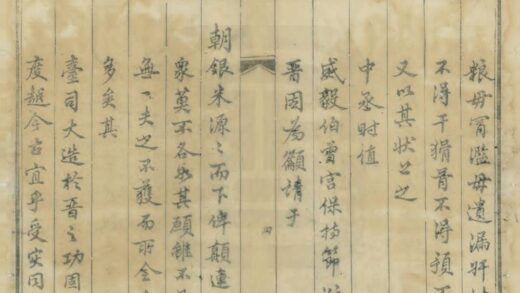 粮毋冒濫毋遺漏奸
不得干猾胥不得預
又以其狀上之
中丞时值
威毅伯曾宫保持節
晋固為籲請于
朝銀米源々而下俾顛連
衆莫不各如其願雖不
無一夫之不獲而所全
多矣其
臺司大造於晋之功固
度越今古宜乎受実同